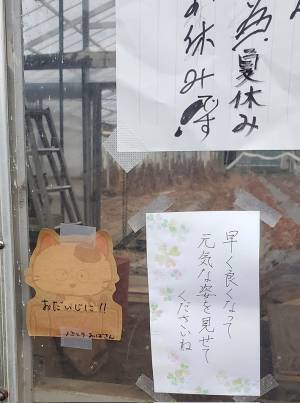 為夏休み
お休みです
早く良くなって
元気な姿を見せて
くださいね
おだいじに!!